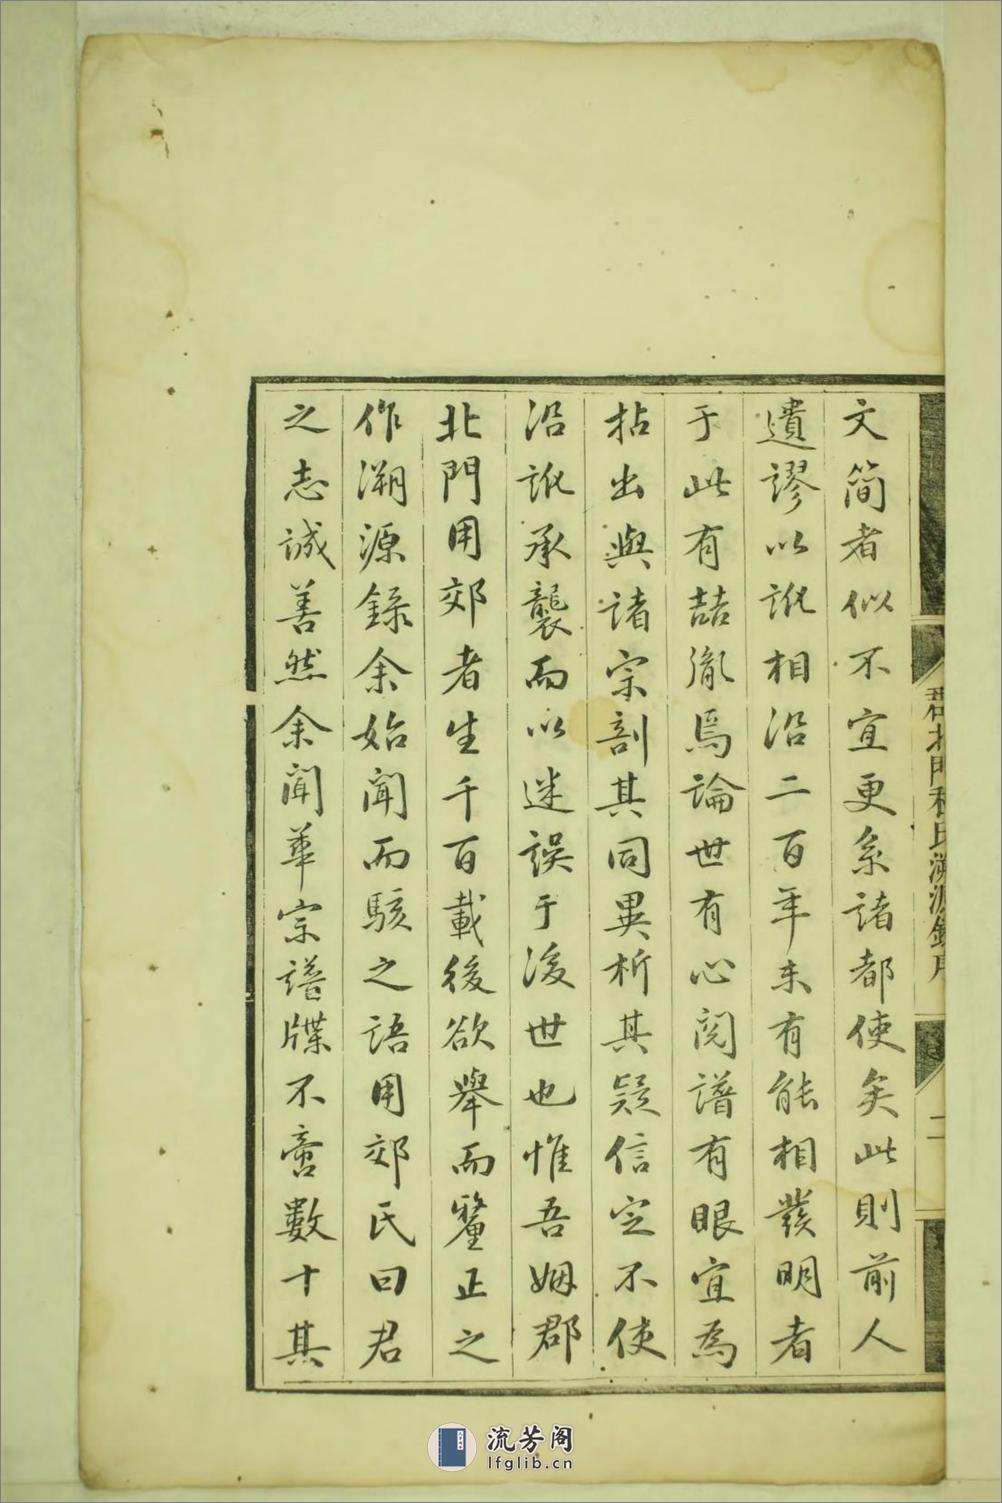 文简者似不宜更系諸都使矣此則前人
遺謬以訛相沿二百年未有能相發明者
于此有喆胤焉論世有心閲譜有眼宜為
拈出與諸宗剖其同異析其疑信定不使
沿訛承襲而以迷誤于後世也惟吾姻郡
北門用郊者生千百載後欲舉而釐正之
作溯源錄余始聞而駭之語用郊氏曰君
之志誠善然余聞華宗譜牒不啻數十其
北門程氏溯源錄序
二
流芳阁
lfglib.cn